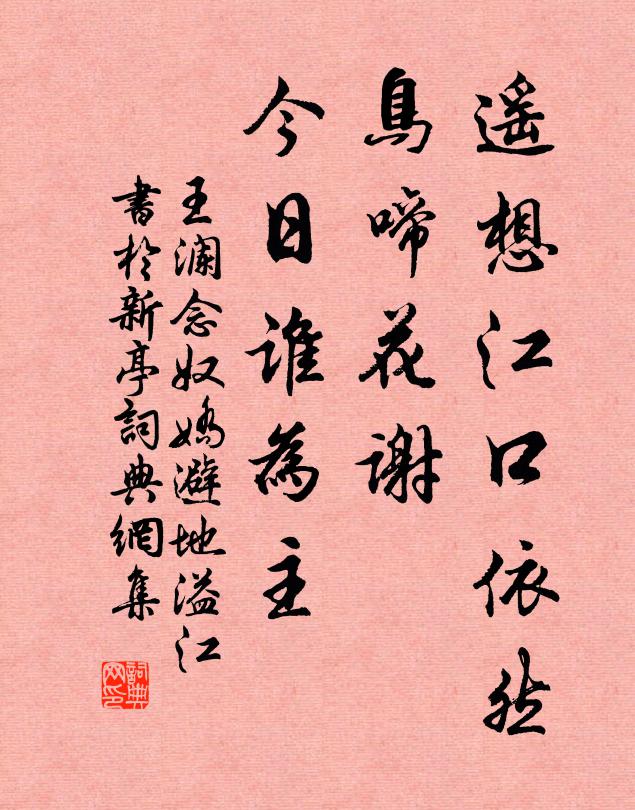 遥想江口依然
鳥啼花谢
今日谁為主
王澜念奴嬌避地溢江
書於新亭詞典網集
詞典網印